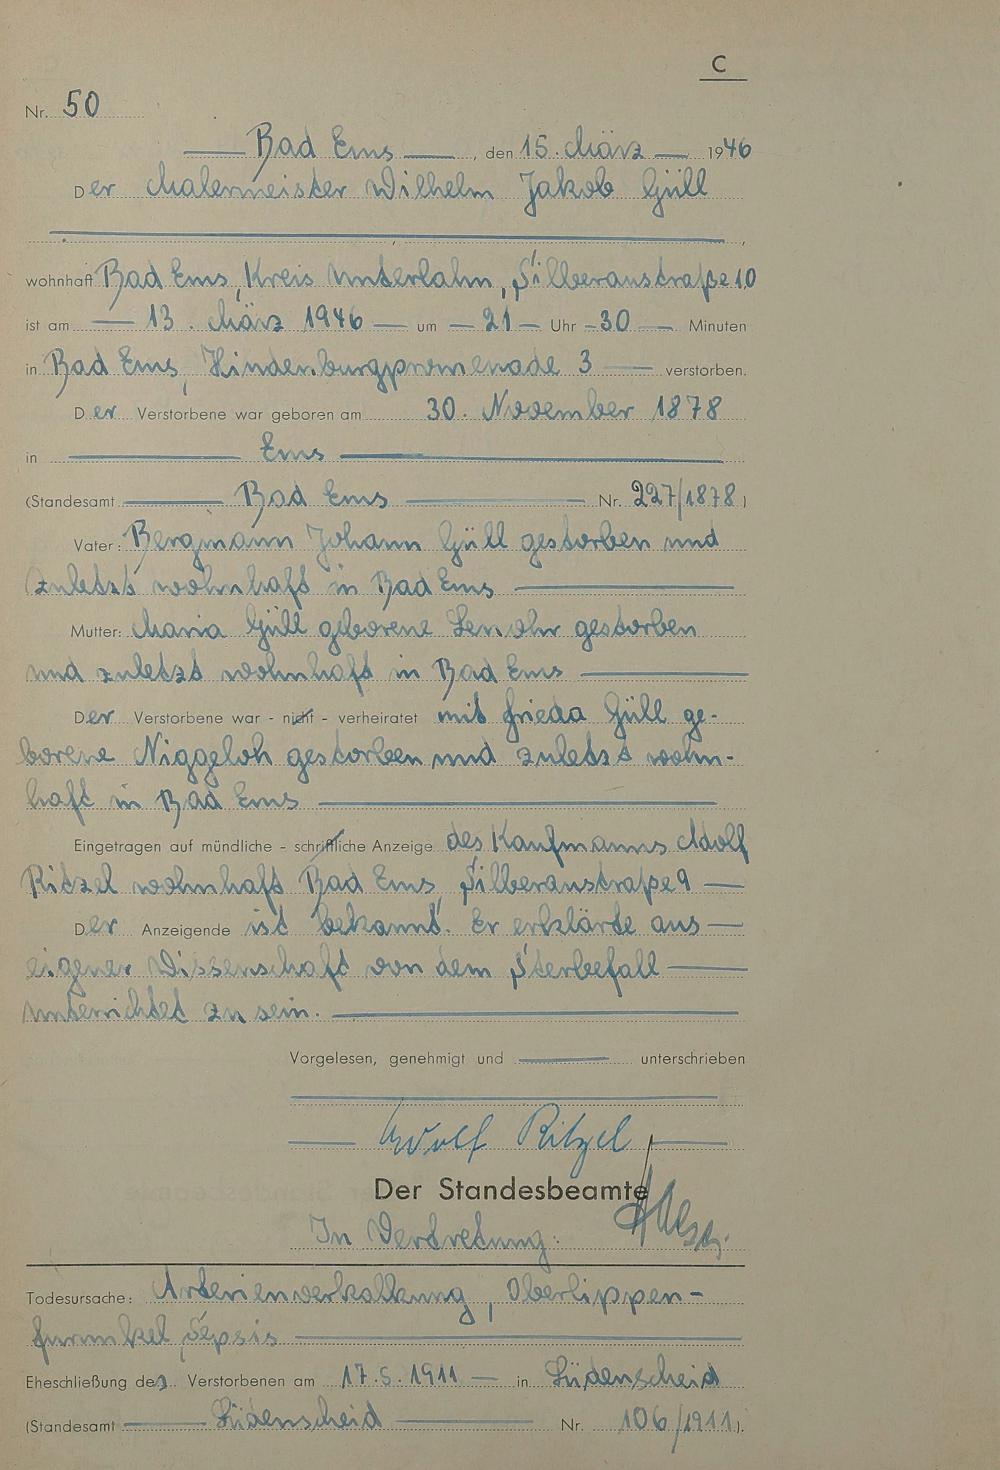 C
Nr. 50
Bad Ems, den 15. März 1946
Der Malermeister Wilhelm Jakob Güll
wohnhaft Bad Ems, Kreis Unterlahn, Silberaustraße 10
ist am 13. März 1946 um 21 Uhr 30 Minuten
in Bad Ems, Hindenburgpromenade 3 verstorben.
Der Verstorbene war geboren am 30. November 1878
in Ems
(Standesamt Bad Ems Nr. 227/1878)
Vater: Bergmann Johann Güll gestorben und
zuletzt wohnhaft in Bad Ems
Mutter: Maria Güll geborene gestorben
und zuletzt wohnhaft in Bad Ems
Der Verstorbene war - nicht - verheiratet mit Frieda Güll ge-
borene Niggeloh gestorben und zuletzt wohn-
haft in Bad Ems
Eingetragen auf mündliche - schriftliche Anzeige des Kaufmanns Adolf
Ritzel wohnhaft Bad Ems, Silberaustraße 9
Der Anzeigende ist bekannt. Er erklärte aus
eigener Wissenschaft von dem Sterbefall
unterrichtet zu sein.
Vorgelesen, genehmigt und unterschrieben
Adolf Ritzel
Der Standesbeamte
In Vertretung:
Todesursache: Arterienverkalkung, Oberlippen-
furunkel, Sepsis
Eheschließung des Verstorbenen am 17.5.1911 in Lüdenscheid
(Standesamt Lüdenscheid Nr. 106/1911).